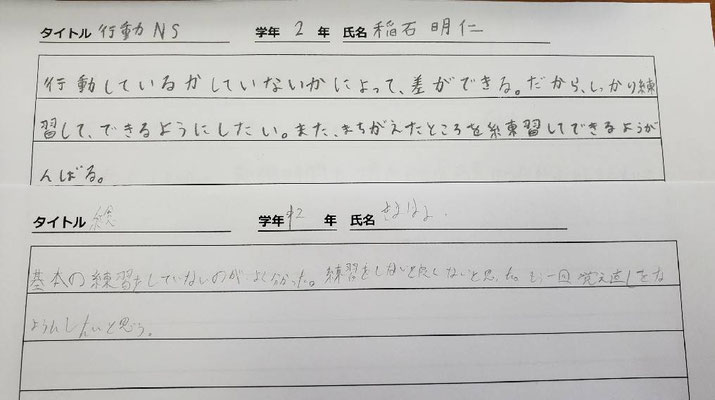 タイトル 行動NS 学年 2 年 氏名 稲石 明仁
行動しているかしていないかによって、差ができる。だから、しっかり練
習して、できるようにしたい。また、まちがえたところを練習してできるようが
んばる。
タイトル 学年 中2 年 氏名
基本の練習をしていないのがよく分かった。練習をしないと良くないと思った。もう一回覚え直しをな
ようにしたいと思う。